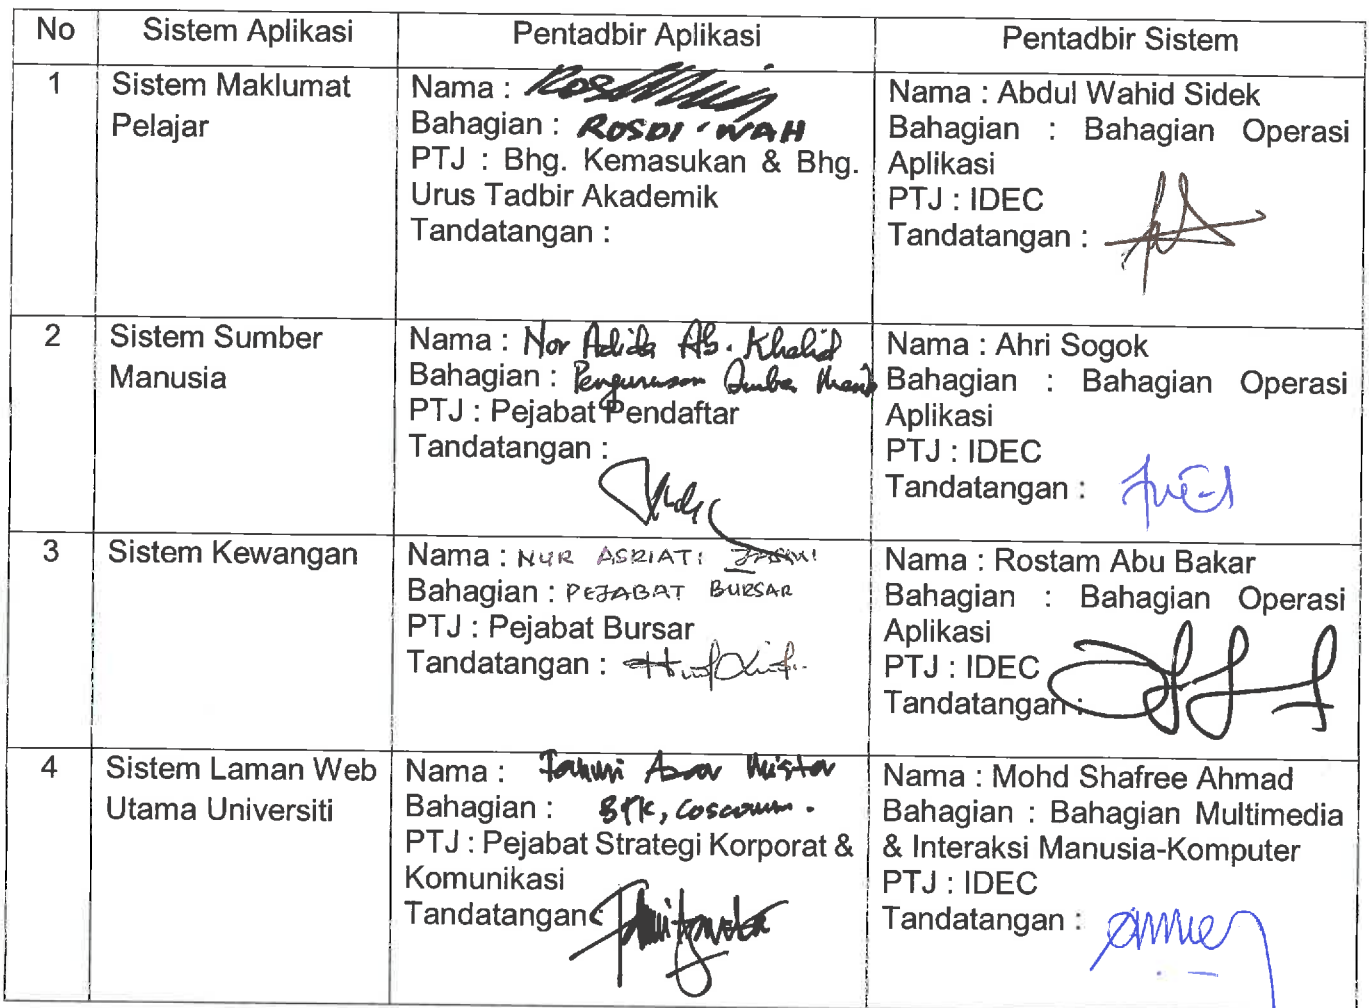 No Sistem Aplikasi Pentadbir Aplikasi Pentadbir Sistem
1
Sistem Maklumat
Pelajar
Nama :
Bahagian : ROSDI WAH
PTJ : Bhg. Kemasukan & Bhg.
Urus Tadbir Akademik
Tandatangan :
Nama : Abdul Wahid Sidek
Bahagian : Bahagian Operasi
Aplikasi
PTJ : IDEC
Tandatangan :
2
Sistem Sumber
Manusia
Nama : Nor Adida Ab. Khalid
Bahagian : Pengurusan
PTJ : Pejabat Pendaftar
Tandatangan :
Nama : Ahri Sogok
Bahagian : Bahagian Operasi
Aplikasi
PTJ : IDEC
Tandatangan :
3
Sistem Kewangan
Nama : NUR ASRIATI
Bahagian : PEJABAT BURSAR
PTJ : Pejabat Bursar
Tandatangan :
Nama : Rostam Abu Bakar
Bahagian : Bahagian Operasi
Aplikasi
PTJ : IDEC
Tandatangan :
4
Sistem Laman Web
Utama Universiti
Nama :
Bahagian :
PTJ : Pejabat Strategi Korporat &
Komunikasi
Tandatangan :
Nama : Mohd Shafree Ahmad
Bahagian : Bahagian Multimedia
& Interaksi Manusia-Komputer
PTJ : IDEC
Tandatangan :